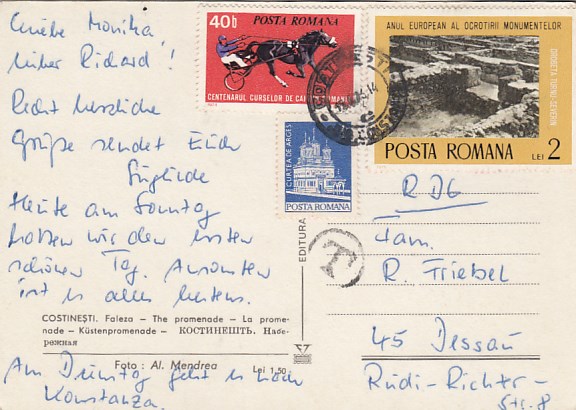 Liebe Monika,
lieber Richard!
Recht herzliche
Grüße sendet Euch
Heute am Sonntag
hatten wir den ersten
schönen Tag. Ansonsten
ist es alles bestens.
COSTINEȘTI. Faleza – The promenade – La prome-
nade – Küstenpromenade – КОСТИНЕШТЬ. Набе-
режная
Foto : Al. Mendrea Lei 1,50
Am Dienstag geht es nach
Konstanza.
40b POSTA ROMANA
CENTENARUL CURSELOR DE CAI ROMANIA
CURTEA DE ARGEȘ
POSTA ROMANA
ANUL EUROPEAN AL OCROTIRII MONUMENTELOR
DROBETA TURNU SEVERIN
POSTA ROMANA LEI 2
EDITURA
T
RDG
Fam.
R. Friebel
45 Dessau
Rudi-Richter-
Str. 8